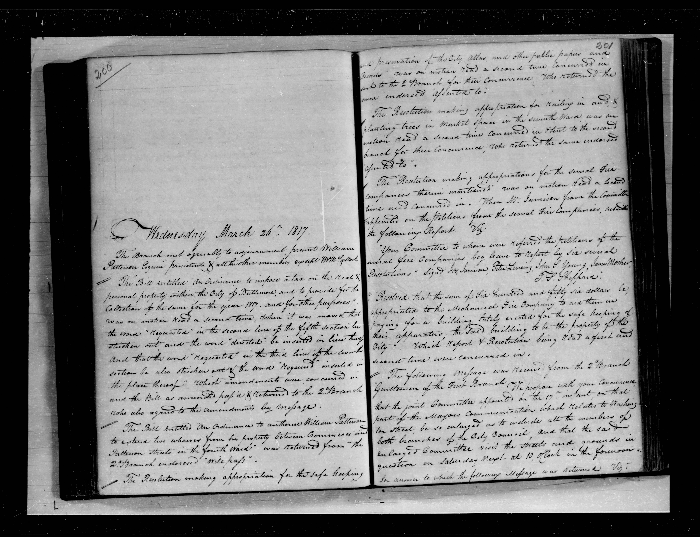 200
Wednesday March 26th 1817
The Branch met agreeable to adjournment present William
Patterson Esquire President & all the other members except
The Bill entitled An Ordinance to impose a tax on the Real &
personal property within the City of Baltimore, and to provide for the
Collection of the same for the year 1817, and for other purposes
was on motion read a second time when it was moved that
the word "requested" in the second line of the fifth section be
stricken out and the word "directed" be inserted in lieu thereof
And that the word "requested" in the third line of the
section be also stricken out & the word "required" inserted in
the place thereof. Which amendments were concurred in
and the Bill as amended pass'd & returned to the 2d Branch
who also agreed to the amendments by message.
The Bill entitled An Ordinance to authorise William Patterson
to extend his wharves from his property between Commerce and
Patterson Streets in the fourth Ward was returned from the
2d Branch endorsed "will pass".
The Resolution making appropriation for the safe keeping
201
and preservation of the City Atlas and other public papers and
was on motion read a second time concurred in
sent to the 2d Branch for their Concurrence, Who returned the
same endorsed assented to.
The Resolution making appropriation for railing in and
planting trees in Market Space in the seventh Ward was on
motion read a second time concurred in & sent to the second
branch for their concurrence, Who returned the same endorsed
assented to.
The Resolution making appropriations for the several Fire
Companies therein mentioned was on motion read a second
time and concurred in. When Mr. Jamison from the Committee
on the Petitions from the several Fire Companies, made
the following Report Vz.
Your Committee to whom were referred the petitions of the
several fire Companies, beg leave to Report by six several
Resolutions. Sign'd
Resolved that the sum of Six hundred and fifty six dollars be
appropriated to the Mechanical Fire Company to use them in
paying for a building lately erected for the safe keeping of
their apparatus, the said building to be the property of the
City. Which report & Resolution being read a first and
second time were concurred in.
The following Message was received from the 2d Branch
Gentlemen of the First Branch We propose with your Concurrence
that the joint Committee appointed on the inst. on that
part of the Mayors Communication which relates to
ton street be so enlarged as to include all the members of
both branches of the City Council, and that the said
enlarged Committee visit the streets and grounds in
question on Saturday next at 10 O'Clock in the forenoon.
In answer to which the following Message was returned Vz: